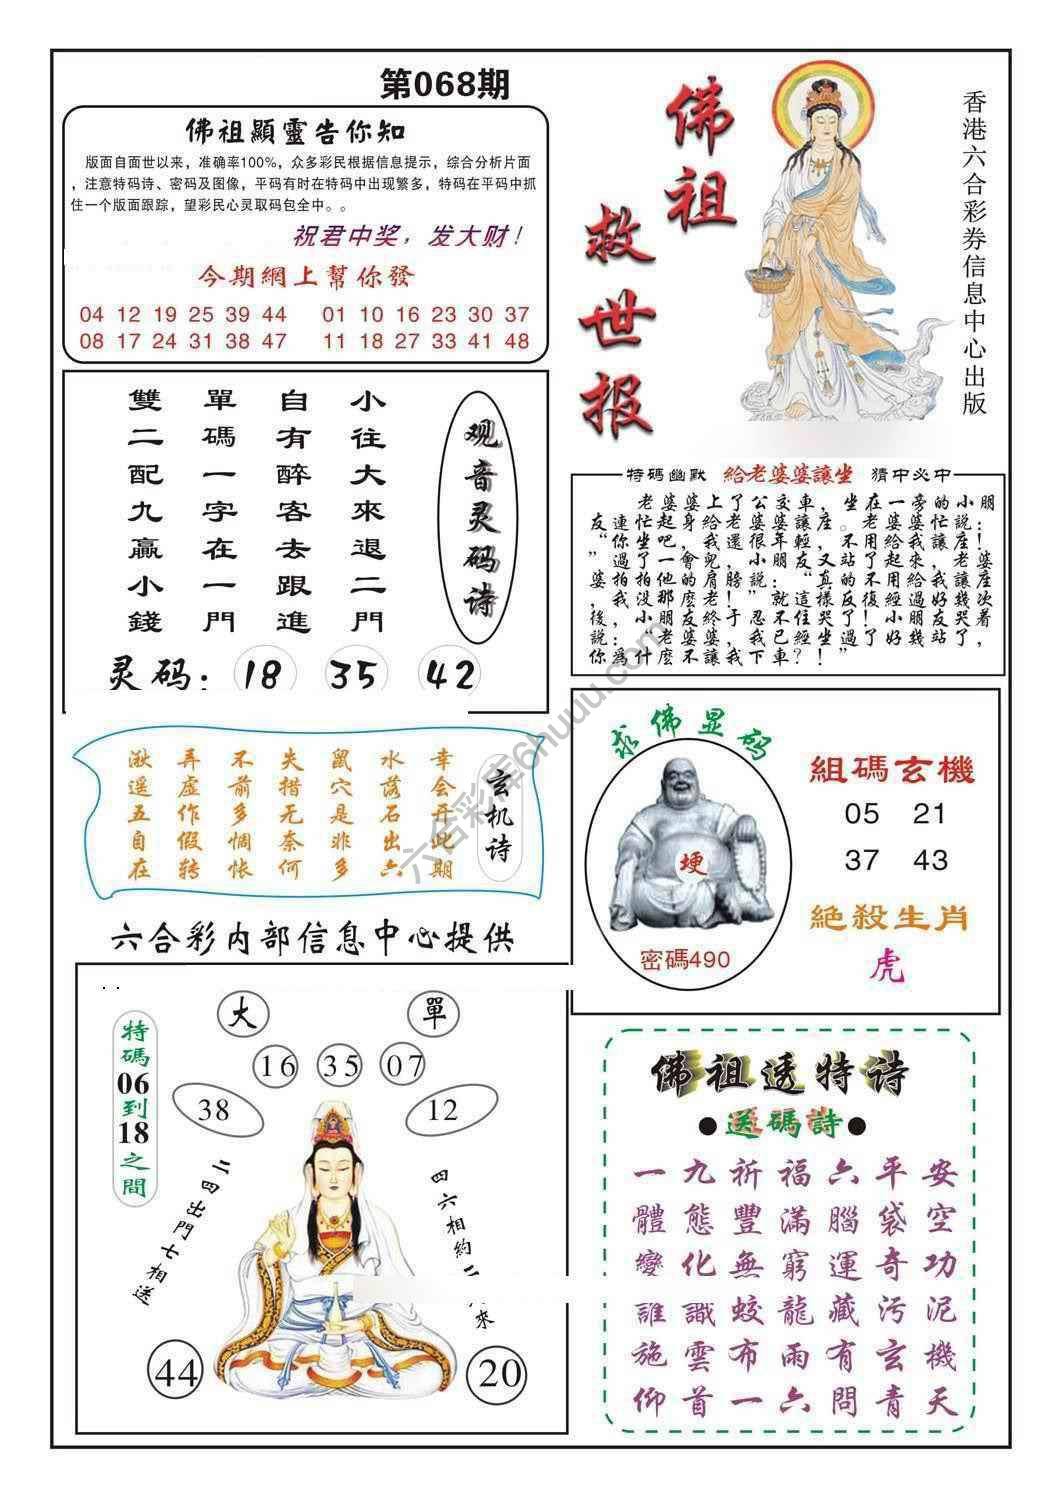 第068期
佛祖顯靈告你知
版面自面世以来，准确率100%，众多彩民根据信息提示，综合分析片面
，注意特码诗、密码及图像，平码有时在特码中出现繁多，特码在平码中抓
住一个版面跟踪，望彩民心灵取码包全中。。
祝君中奖，发大财！
今期網上幫你發
04 12 19 25 39 44 01 10 16 23 30 37
08 17 24 31 38 47 11 18 27 33 41 48
佛祖
救世报
香港六合彩券信息中心出版
观音灵码诗
小往大來退二門
自有醉客去跟進
單碼一字在一門
雙二配九贏小錢
灵码：18 35 42
特碼幽默 給老婆婆讓坐 猜中必中
老婆婆上了公交車，坐在一旁的小朋
友連忙起身給老婆婆讓座。老婆婆忙説：
“你坐吧，我還很年輕，不用給我讓座！
”過了一會兒，小朋友又站了起來，老婆
婆拍拍他的肩膀説：“真的不用給我讓座
，我没那麽老！”就這樣反復經過好幾次
後，小朋友終于忍不住哭了！小朋友哭着
説：“老婆婆，我已經坐過了好幾站了，
你爲什麽不讓我下車？！”
玄机诗
幸会开此期
水落石出六
鼠穴是非多
失措无奈何
不前多惆怅
弄虚作假转
湫遥五自在
求佛显码
埂
密碼490
組碼玄機
05 21
37 43
絶殺生肖
虎
六合彩内部信息中心提供
特碼06到18之間
大 單
16 35 07
38 12
二四出門七相送
四六相約
來
44 20
佛祖透特诗
●送碼詩●
一九祈福六平安
體態豐滿腦袋空
變化無窮運奇功
誰識蛟龍藏污泥
施雲布雨有玄機
仰首一六問青天
六合彩库6huuu.com